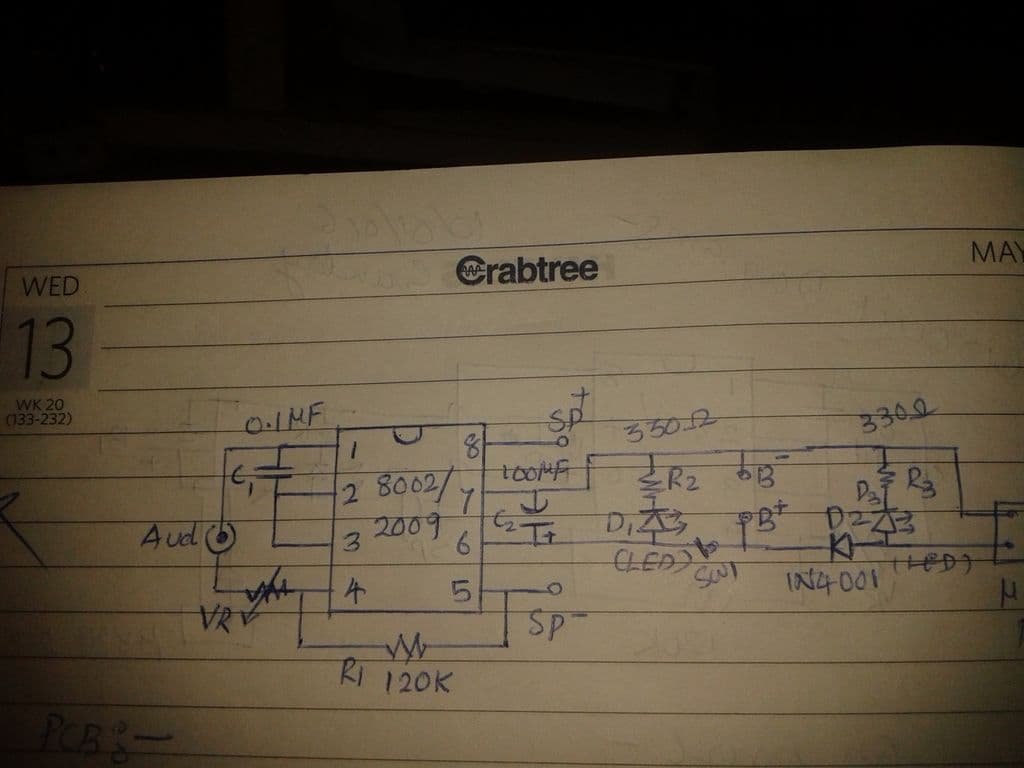 Crabtree
MAY
WED
13
WK 20
(133-232)
0.1MF
C1
Aud
VR
1
2
3
4
8002/
2009
8
7
6
5
R1 120K
SP+
100MF
C2
SP-
330Ω
R2
D1
(LED)
SW1
B-
B+
330Ω
R3
D3
D2
IN4001
(LED)
PCB :-